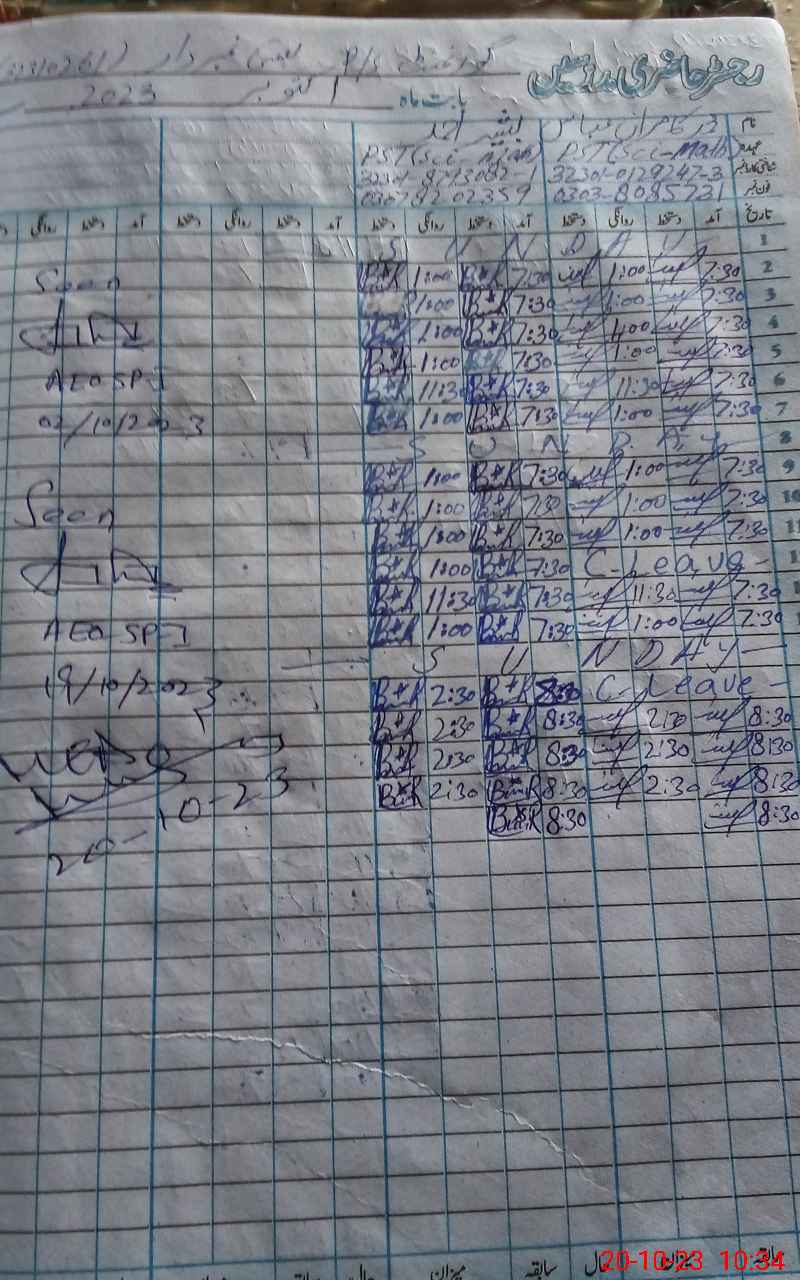 رجسٹر حاضری مدرسین
گورنمنٹ P/S بستی نمبردار
بابت ماہ اکتوبر 2023
نام بشیر احمد
عہدہ PST(Sci-Math) PST(Sci-Math)
شناختی کارڈ نمبر 32301-0129247-3
فون نمبر 0303-8085731 03078202359
تاریخ آمد دستخط روانگی دستخط آمد دستخط روانگی دستخط آمد دستخط روانگی دستخط آمد دستخط روانگی
1 S U N D A Y
2 7:30 1:00 7:30 1:00
Seen
3 7:30 1:00 7:30 1:00
4 7:30 1:00 7:30 1:00
5 7:30 1:00 7:30 1:00
6 7:30 11:30 7:30 11:30
AEO SPI
7 7:30 1:00 7:30 1:00
02/10/2023
8 S U N D A Y
9 7:30 1:00 7:30 1:00
10 7:30 1:00 7:30 1:00
Seen
11 7:30 1:00 7:30 1:00
C.Leave 7:30 1:00
7:30 11:30 7:30 11:30
7:30 1:00 7:30 1:00
AEO SPI
S U N D A Y
C.Leave 8:30 2:30
19/10/2023
8:30 2:30 8:30 2:30
8:30 2:30 8:30 2:30
8:30 2:30 8:30 2:30
8:30 8:30
20-10-23
سابقہ میزان حال سابقہ میزان
20-10-23 10:34